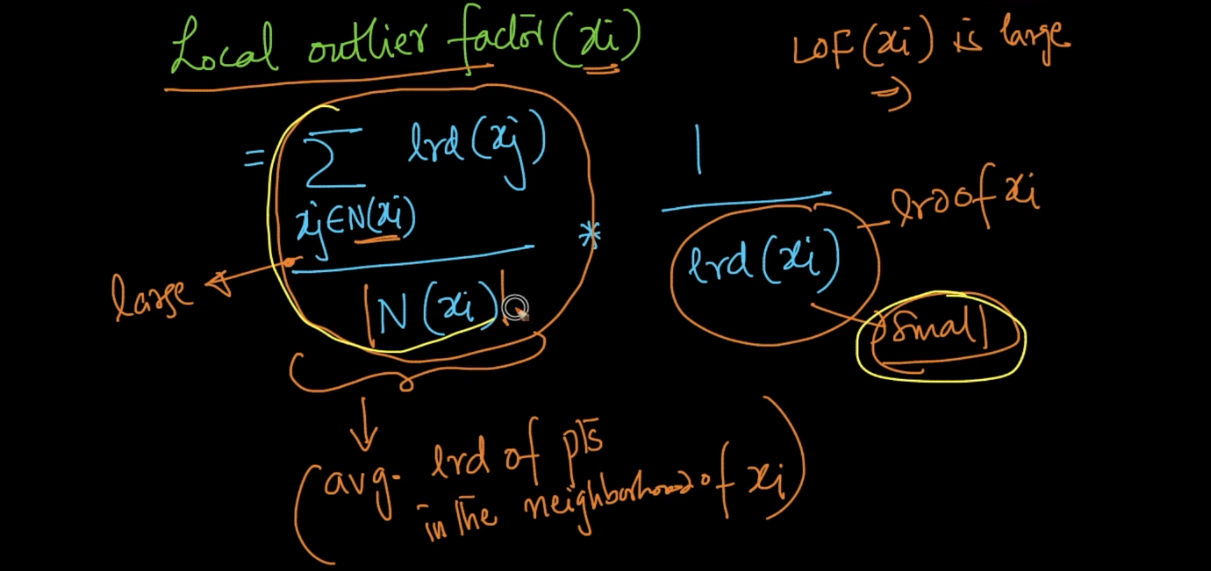 Local outlier factor (xi)
LOF (xi) is large
⇒
= ∑ lrd (xj)
xj∈N(xi)
|N (xi)|
*
1
lrd (xi)
lrd of xi
large
small
(avg. lrd of pts
in the neighborhood of xi)